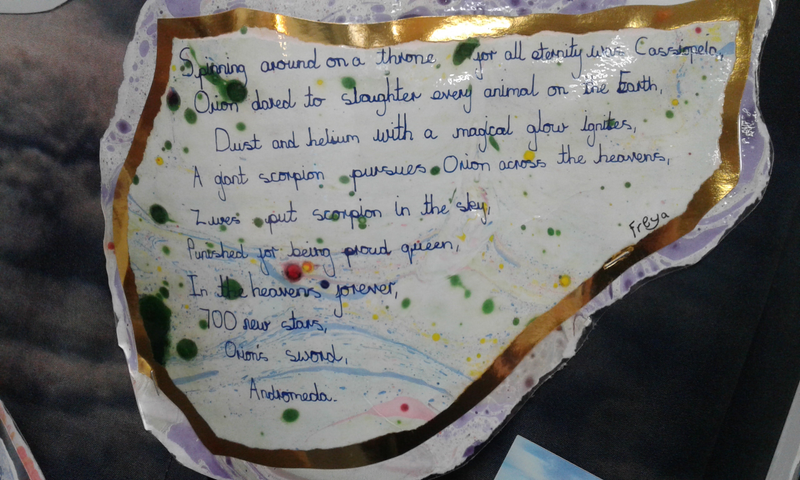 Spinning around on a throne for all eternity was Cassiopela,
Orion dared to slaughter every animal on the Earth,
Dust and helium with a magical glow ignites,
A giant scorpion pursues Orion across the heavens,
Zures put scorpion in the sky,
Punished for being proud queen,
In the heavens forever,
700 new stars,
Orion's sword,
Andromeda.
Freya